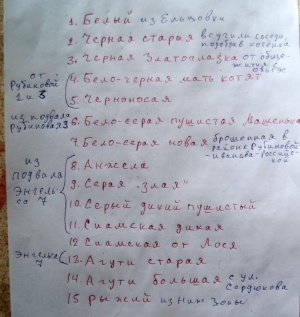 1. Белый из Ельцовки
2 Черная старая всучили соседи,
подобрав котенка
3. Черная Златоглазка от обще-
жития
от
Рубиновой
1 и 3
4. Бело-черная мать котят
5. Черноносая
из подвала
Рубиновая 3
6. Бело-серая пушистая Машенька
7. Бело-серая новая брошенная в
районе Рубиновой
-Иванова-Российс-
кой
из
подвала
Энгель-
са 7
8. Анжела
9. Серая "злая"
10. Серый дикий пушистый
11. Сиамская дикая
12 Сиамская от Лося
Энгельса
7
13. Агути старая
14. Агути большая с ул.
Сердюкова
15 Рыжий из Ниж Зоны